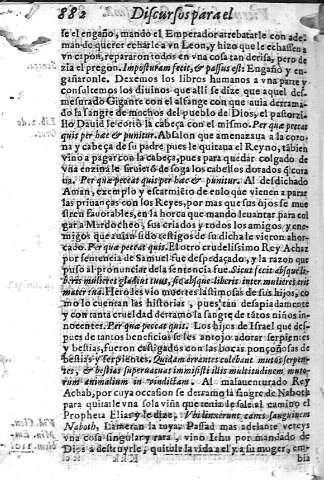 882 Discursos para el
se el engaño, mandó el Emperador arrebatarle con ade-
man de querer echarle a vn Leon, y hizo que le echassen a
vn cipon, repararon todos en vna cosa tan derisa, pero de
zia el pregon. Imposturam fecit, & passus est: Engaño y en-
gañaronle. Dexemos los libros humanos a vna parte y
consultemos los diuinos que alli se dize que aquel des-
mesurado Gigante con el alfange con que auia derrama-
do la sangre de muchos del pueblo de Dios, el pastorzi-
llo Dauid le cortò la cabeça con el mismo. Per quæ peccat
quis per hæc & punitur. Absalon que amenazaua a la coro-
na y cabeça de su padre pues le quitaua el Reyno, tābien
vino a pagar con la cabeça, pues para quedar colgado de
vna enzina le siruierō de soga los cabellos dorados q̄ cura
ua. Per quæ peccat quis per hæc & punitur. Al desdichado
Aman, exemplo y escarmiēto de en lo que vienen a parar
las priuanças con los Reyes, por mas que sus ojos se mue
stren fauorables, en la horca que mando leuantar para col
gar a Mardocheo, sus criados y todos los amigos y ene-
migos que auian sido testigos de su dicha le vieron ahor-
cado. Per quæ peccat quis. El otro crudelissimo Rey Achaz
por sentencia de Samuel fue despedaçado, y la razon que
puso al pronunciar dela sentencia fue. Sicut fecit absq; li-
beris mulieres gladius tuus, sic absque liberis inter mulieres erit
mater tua. Herodes vio muertes lastimosas de sus hijos, co
mo lo cuentan las historias, pues tan despiadamente
y con tanta crueldad derramo la sangre de tātos niños in-
nocentes. Per quæ peccat quis. Los hijos de Israel que des-
pues de tantos beneficios se les antojo adorar serpientes
y bestias, fueron castigados con las bocas ponçoñosas de
bestias y serpientes. Quidam errantes colebant mutos serpen-
tes, & bestias superuacuas immisisti illis multitudinem muto-
rum animalium in vindictam. Al malauenturado Rey
Achab, por cuya occasion se derramo la sāgre de Naboth
para quitarle vna sola viña que tenia le sale al camino el
Propheta Elias y le dize. Vbi linxerunt canes sanguinem
Naboth, Lameran la tuya. Passad mas adelante vereys
vna cosa singular y rara, vino Iehu por mandado de
Dios a destruyrle, quitole la vida a el y a su muger, em-
bia